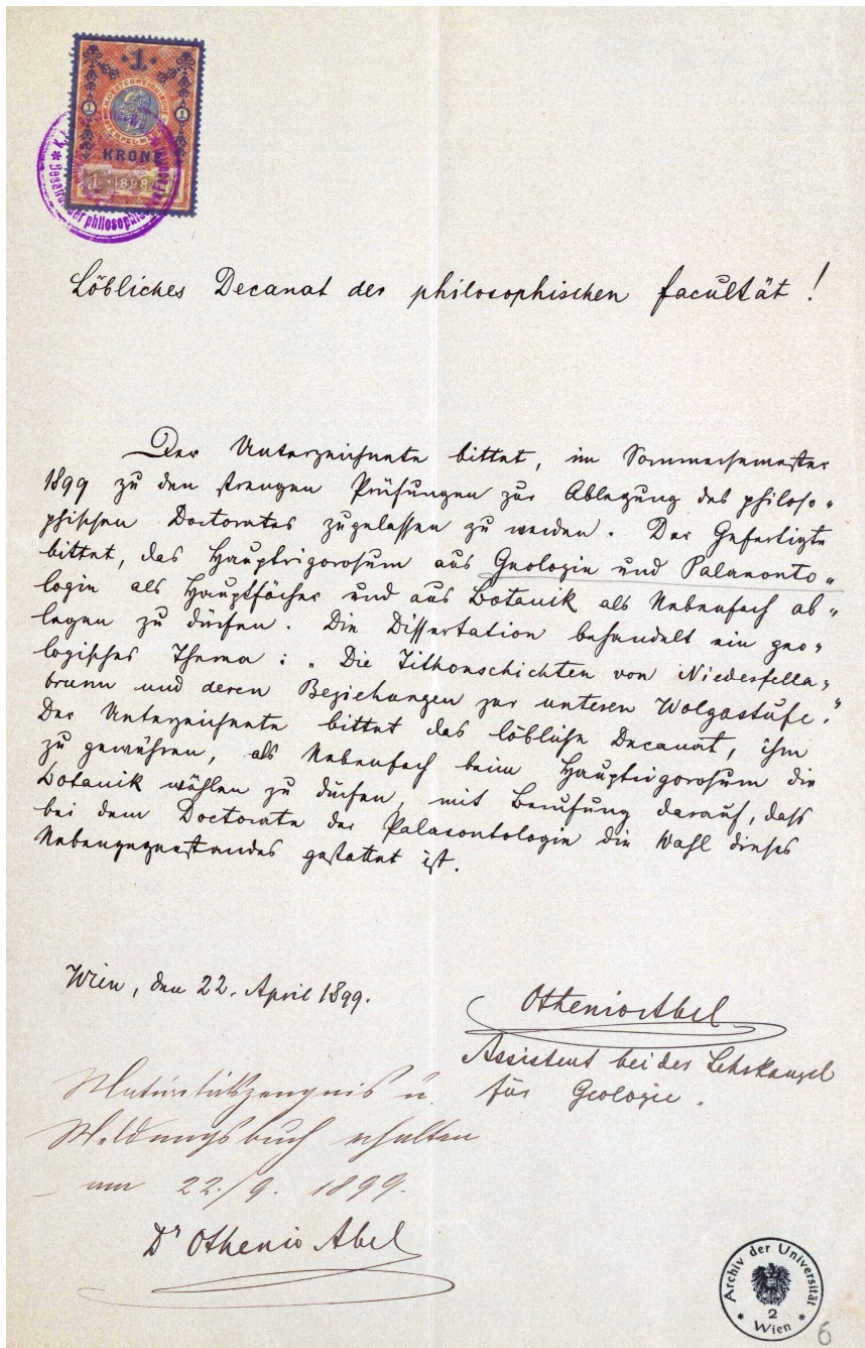 1
1 1
KRONE
1 · 1898 · 1
Löbliches Decanat der philosophischen Facultät!
Der Unterzeichnete bittet, im Sommersemester
1899 zu den strengen Prüfungen zur Ablegung des philoso-
phischen Doctorates zugelassen zu werden. Der Gefertigte
bittet, das Hauptrigorosum aus Geologie und Palaeonto-
logie als Hauptfächer und aus Botanik als Nebenfach ab-
legen zu dürfen. Die Dissertation behandelt ein geo-
logisches Thema: „Die Tithonschichten von Niederfella-
brunn und deren Beziehungen zur unteren Wolgastufe."
Der Unterzeichnete bittet das löbliche Decanat, ihm
zu gewähren, als Nebenfach beim Hauptrigorosum die
Botanik wählen zu dürfen, mit Berufung darauf, dass
bei dem Doctorate der Palaeontologie die Wahl dieses
Nebengegenstandes gestattet ist.
Wien, den 22. April 1899.
Othenio Abel
Assistent bei der Lehrkanzel
für Geologie.
Maturitätszeugnis u.
Meldungsbuch erhalten
am 22./9. 1899.
Dr Othenio Abel
Archiv der Universität
2
Wien
6